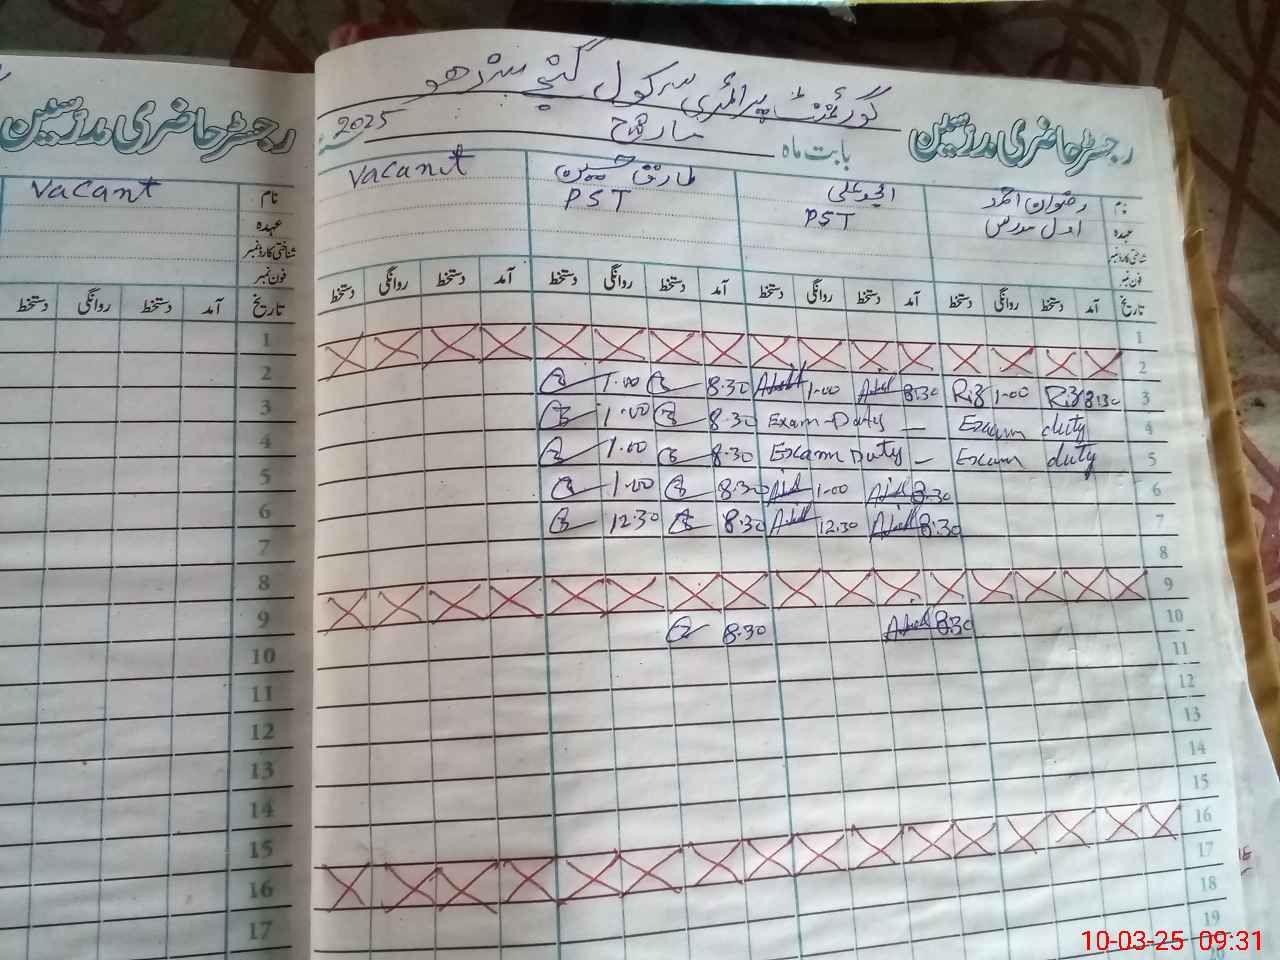 گورنمنٹ پرائمری سکول گنجہ سندھو
رجسٹر حاضری مدرسین
بابت ماہ مارچ 2025
نام رضوان احمد
عہدہ اول مدرس
شناختی کارڈ نمبر
فون نمبر
PST
طارق حسین
PST
Vacant
تاریخ آمد دستخط روانگی دستخط آمد دستخط روانگی دستخط آمد دستخط روانگی دستخط آمد دستخط روانگی دستخط
1
2
3 8:30 Riz 1-00 Riz 8:30 1-00 8.30 1.00
4 Exam duty Exam-Duty – 8.30 1.00
5 Exam duty Exam Duty – 8.30 1.00
6 8.30 1-00 8.30 1.00
7 8.30 12.30 8.30 12.30
8
9
10 8:30 8.30
11
12
13
14
15
16
17
18
19
20
رجسٹر حاضری مدرسین
نام Vacant
عہدہ
شناختی کارڈ نمبر
فون نمبر
تاریخ آمد دستخط روانگی دستخط
1
2
3
4
5
6
7
8
9
10
11
12
13
14
15
16
17
10-03-25 09:31